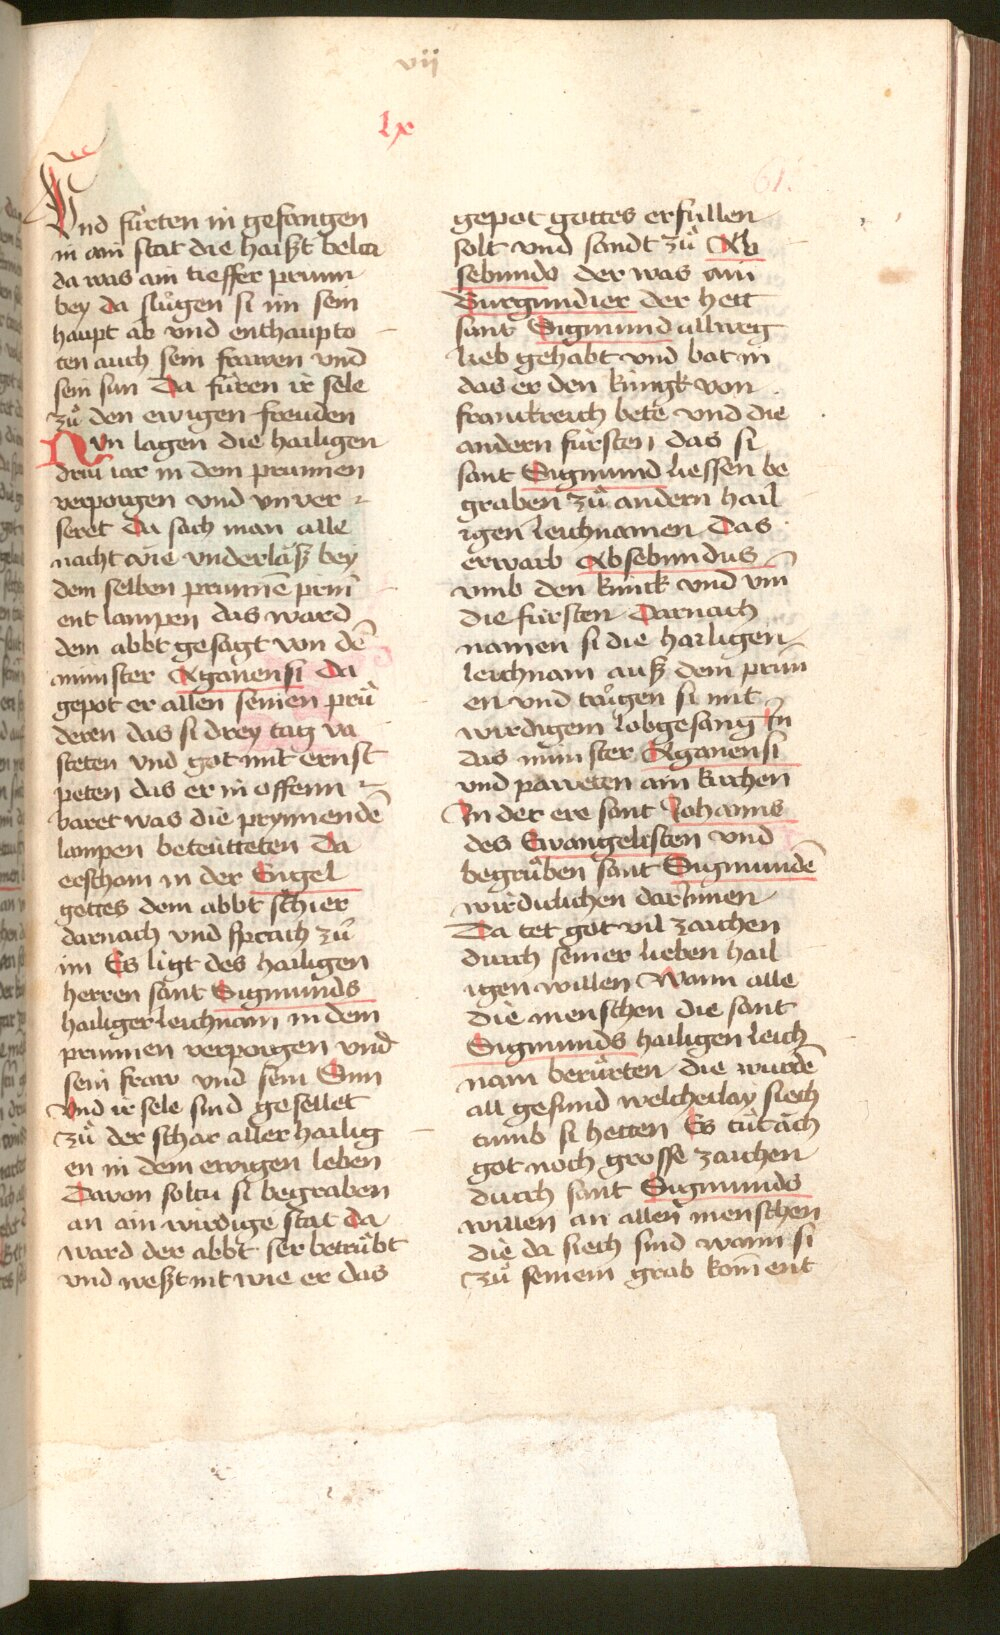 vij
lx
61.
Vnd fürten in gefangen
in ain stat die haißt belca
da was ain tieffer prunn
bey da slůgen si im sein
haupt ab vnd enthaupto
ten auch sein frawen vnd
sein sun Da fůren ir sele
zů den ewigen freuden
Nvn lagen die hailigen
driu iar in dem prunnen
verporgen vnd vnver
seret Da sach man alle
nacht wie vnderläß bey
dem selben prunnē prinn̄
ent lampen das ward
dem abbt gesagt von dē
münster Aganensi Da
gepot er allen seinen prů
deren das si drey tag va
steten vnd got mit ernst
peten das er in offenn
baret was die prynnendē
lampen beteütteten Da
erscham in der Engel
gottes dem abbt schier
darnach vnd sprach zů
im Es ligt des hailigen
herren sant Sigmunds
hailiger leichnam in dem
prunnen verporgen vnd
sein fraw vnd sein Sun
vnd ir sele sind gesellet
zů der schar aller hailig
en in dem ewigen leben
Davon soltu si begraben
an ain wirdige stat da
ward der abbt ser betrübt
vnd weßt nit wie er das
gepot gottes erfüllen
solt vnd sandt zů Ab
sebundo der was ain
Burgundier der hett
sant Sigmund allweg
lieb gehabt vnd bat in
das er den küngk von
frankreich bete vnd die
andern fürsten das si
sant Sigmund liessen be
graben zů andern hail
igen leichnamen Das
erwarb Absebundus
vmb den künck vnd vm̄
die fürsten Darnach
namen si die hailigen
leichnam auß dem prun̄
en vnd trůgen si mit
wirdigem lobgesang In
das münster Aganensi
vnd paweten ain kirchen
In der ere sant Johanns
des Ewangelisten vnd
begrůben sant Sigmundē
wirdiclichen darInnen
Da tet got vil zaichen
durch seiner lieben hail
igen willen Wann alle
die menschen die sant
Sigmunds hailigen leich
nam berürten die wurdē
all gesund welcherlay siech
tumb si hetten Es tůt ach
got noch grosse zaichen
durch sant Sigmunds
willen an allen menschen
die da siech sind wann si
zů seinem grab kom̄ent